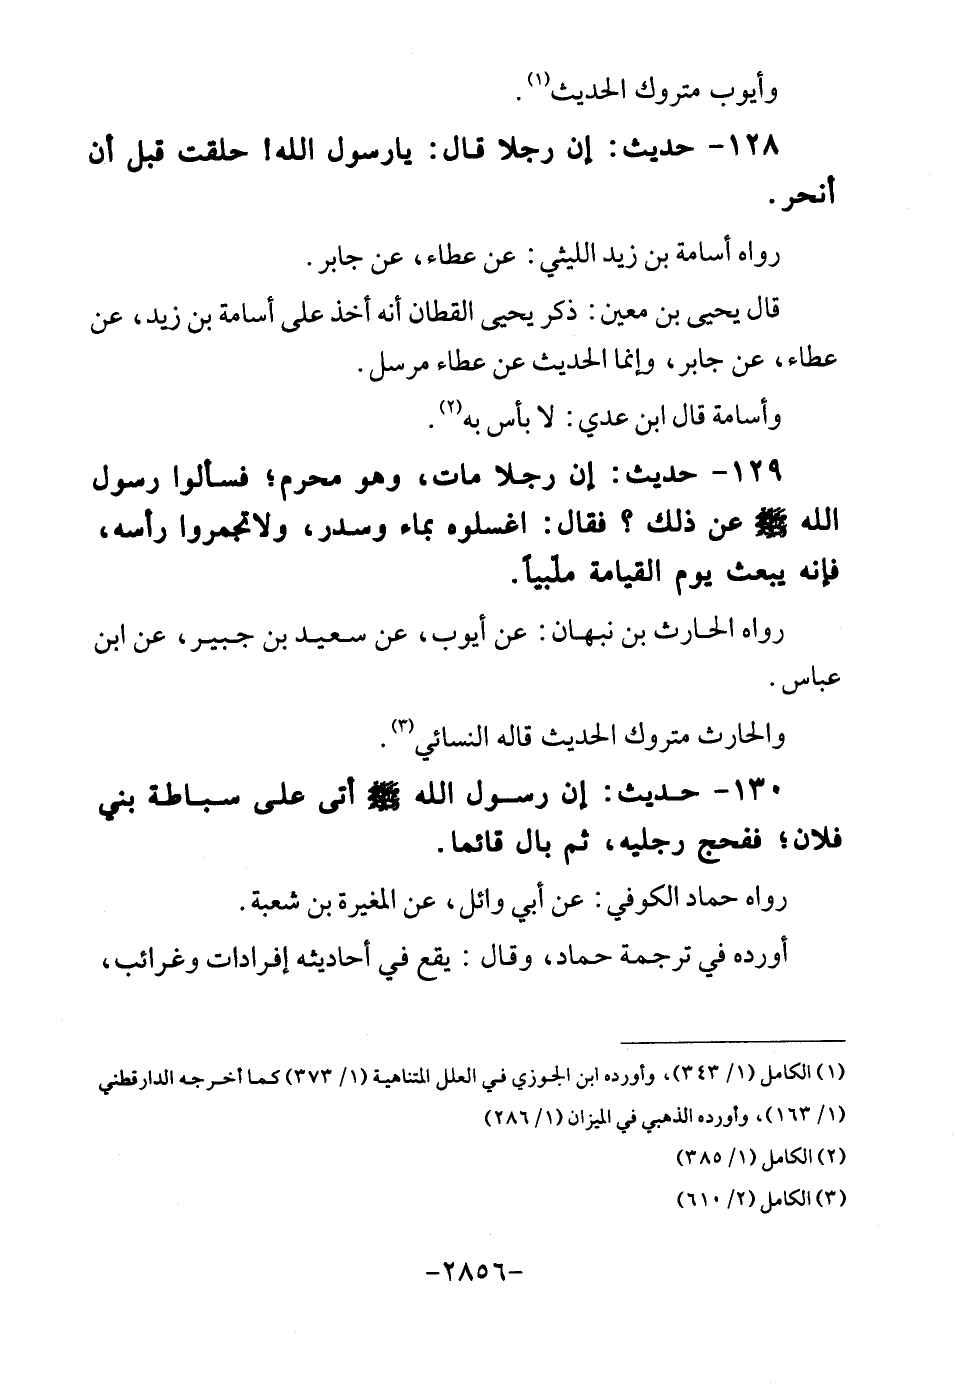 وأيوب متروك الحديث(١).
١٢٨- حديث: إن رجلا قال: يارسول الله! حلقت قبل أن
أنحر.
رواه أسامة بن زيد الليثي: عن عطاء، عن جابر.
قال يحيى بن معين: ذكر يحيى القطان أنه أخذ على أسامة بن زيد، عن
عطاء، عن جابر، وإنما الحديث عن عطاء مرسل.
وأسامة قال ابن عدي: لا بأس به(٢).
١٢٩- حديث: إن رجلا مات، وهو محرم؛ فسألوا رسول
الله ﷺ عن ذلك ؟ فقال: اغسلوه بماء وسدر، ولاتجمروا رأسه،
فإنه يبعث يوم القيامة ملّبياً.
رواه الحارث بن نبهان: عن أيوب، عن سعيد بن جبير، عن ابن
عباس.
والحارث متروك الحديث قاله النسائي(٣).
١٣٠- حديث: إن رسول الله ﷺ أتى على سباطة بني
فلان؛ ففحج رجليه، ثم بال قائما.
رواه حماد الكوفي: عن أبي وائل، عن المغيرة بن شعبة.
أورده في ترجمة حماد، وقال : يقع في أحاديثه إفرادات وغرائب،
(١) الكامل (١/ ٣٤٣)، وأورده ابن الجوزي في العلل المتناهية (١/ ٣٧٣) كما أخرجه الدارقطني
(١/ ١٦٣)، وأورده الذهبي في الميزان (١/ ٢٨٦)
(٢) الكامل (١/ ٣٨٥)
(٣) الكامل (٢/ ٦١٠)
-٢٨٥٦-